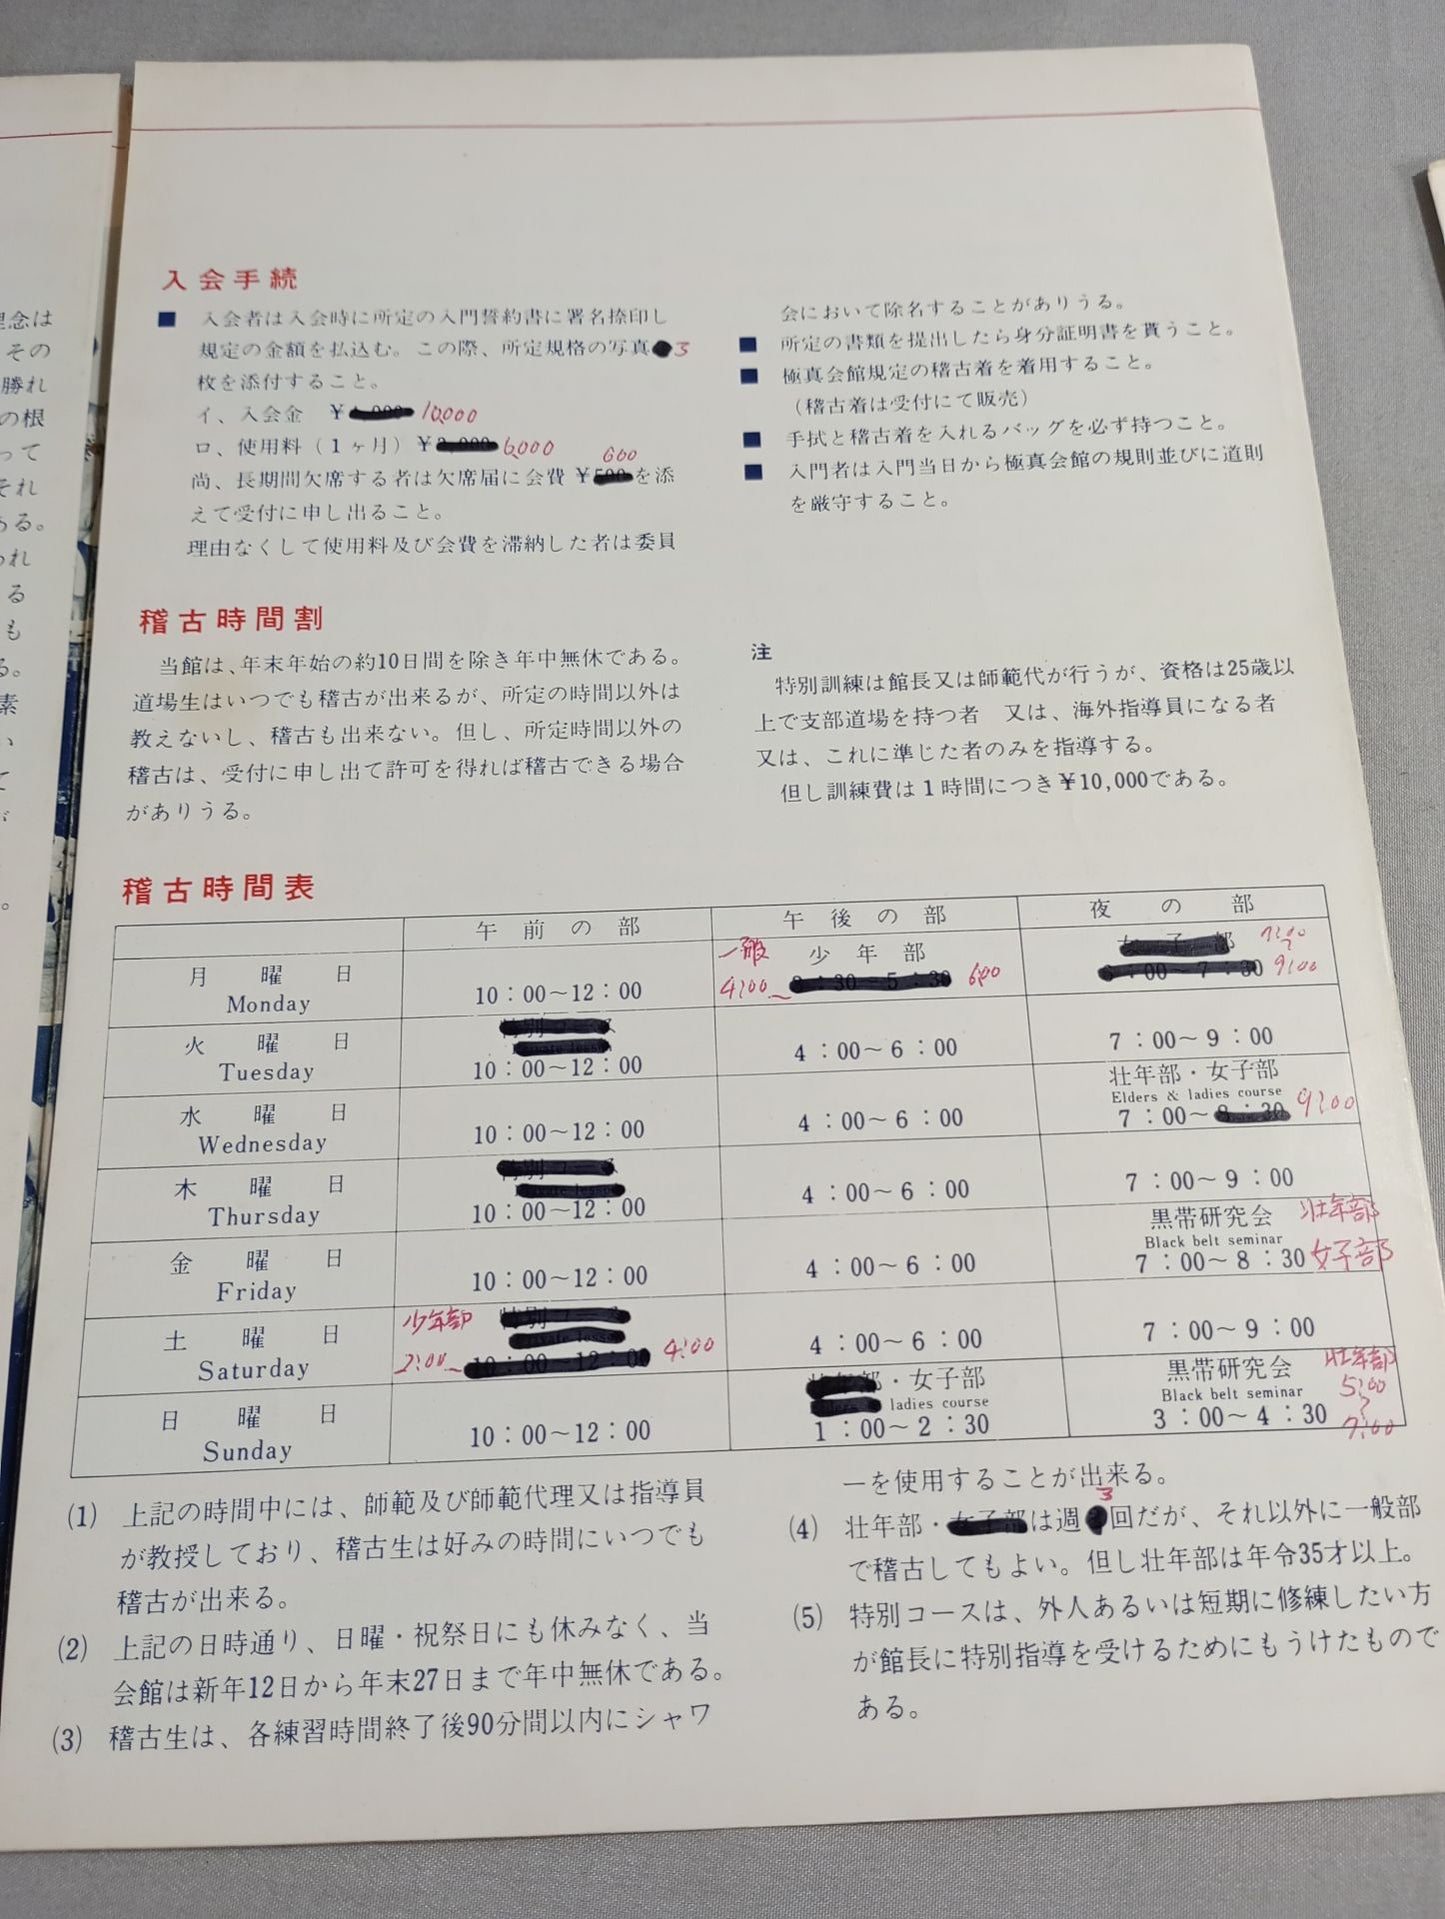 入会手続
■ 入会者は入会時に所定の入門誓約書に署名捺印し
規定の金額を払込む。この際、所定規格の写真3
枚を添付すること。
イ、入会金 ¥ 10,000
ロ、使用料（1ヶ月）¥ 6,000
600
尚、長期間欠席する者は欠席届に会費 ¥を添
えて受付に申し出ること。
理由なくして使用料及び会費を滞納した者は委員
会において除名することがありうる。
■ 所定の書類を提出したら身分証明書を貰うこと。
■ 極真会館規定の稽古着を着用すること。
（稽古着は受付にて販売）
■ 手拭と稽古着を入れるバッグを必ず持つこと。
■ 入門者は入門当日から極真会館の規則並びに道則
を厳守すること。
稽古時間割
当館は、年末年始の約10日間を除き年中無休である。
道場生はいつでも稽古が出来るが、所定の時間以外は
教えないし、稽古も出来ない。但し、所定時間以外の
稽古は、受付に申し出て許可を得れば稽古できる場合
がありうる。
注
特別訓練は館長又は師範代が行うが、資格は25歳以
上で支部道場を持つ者　又は、海外指導員になる者
又は、これに準じた者のみを指導する。
但し訓練費は1時間につき¥10,000である。
稽古時間表
午前の部 午後の部 夜の部
月曜日
Monday
10：00～12：00
一般 少年部
4:00～ 6:00
7:00
～
9:00
火曜日
Tuesday
10：00～12：00
4：00～6：00
7：00～9：00
水曜日
Wednesday
10：00～12：00
4：00～6：00
壮年部・女子部
Elders & ladies course
7：00～ 9:00
木曜日
Thursday
10：00～12：00
4：00～6：00
7：00～9：00
金曜日
Friday
10：00～12：00
4：00～6：00
黒帯研究会 壮年部
Black belt seminar
7：00～8：30 女子部
土曜日
Saturday
少年部
2:00～ 4:00
4：00～6：00
7：00～9：00
日曜日
Sunday
10：00～12：00
・女子部
ladies course
1：00～2：30
黒帯研究会 壮年部
Black belt seminar 5:00
～
3：00～4：30 7:00
(1) 上記の時間中には、師範及び師範代理又は指導員
が教授しており、稽古生は好みの時間にいつでも
稽古が出来る。
(2) 上記の日時通り、日曜・祝祭日にも休みなく、当
会館は新年12日から年末27日まで年中無休である。
(3) 稽古生は、各練習時間終了後90分間以内にシャワ
ーを使用することが出来る。
(4) 壮年部・は週3回だが、それ以外に一般部
で稽古してもよい。但し壮年部は年令35才以上。
(5) 特別コースは、外人あるいは短期に修練したい方
が館長に特別指導を受けるためにもうけたもので
ある。